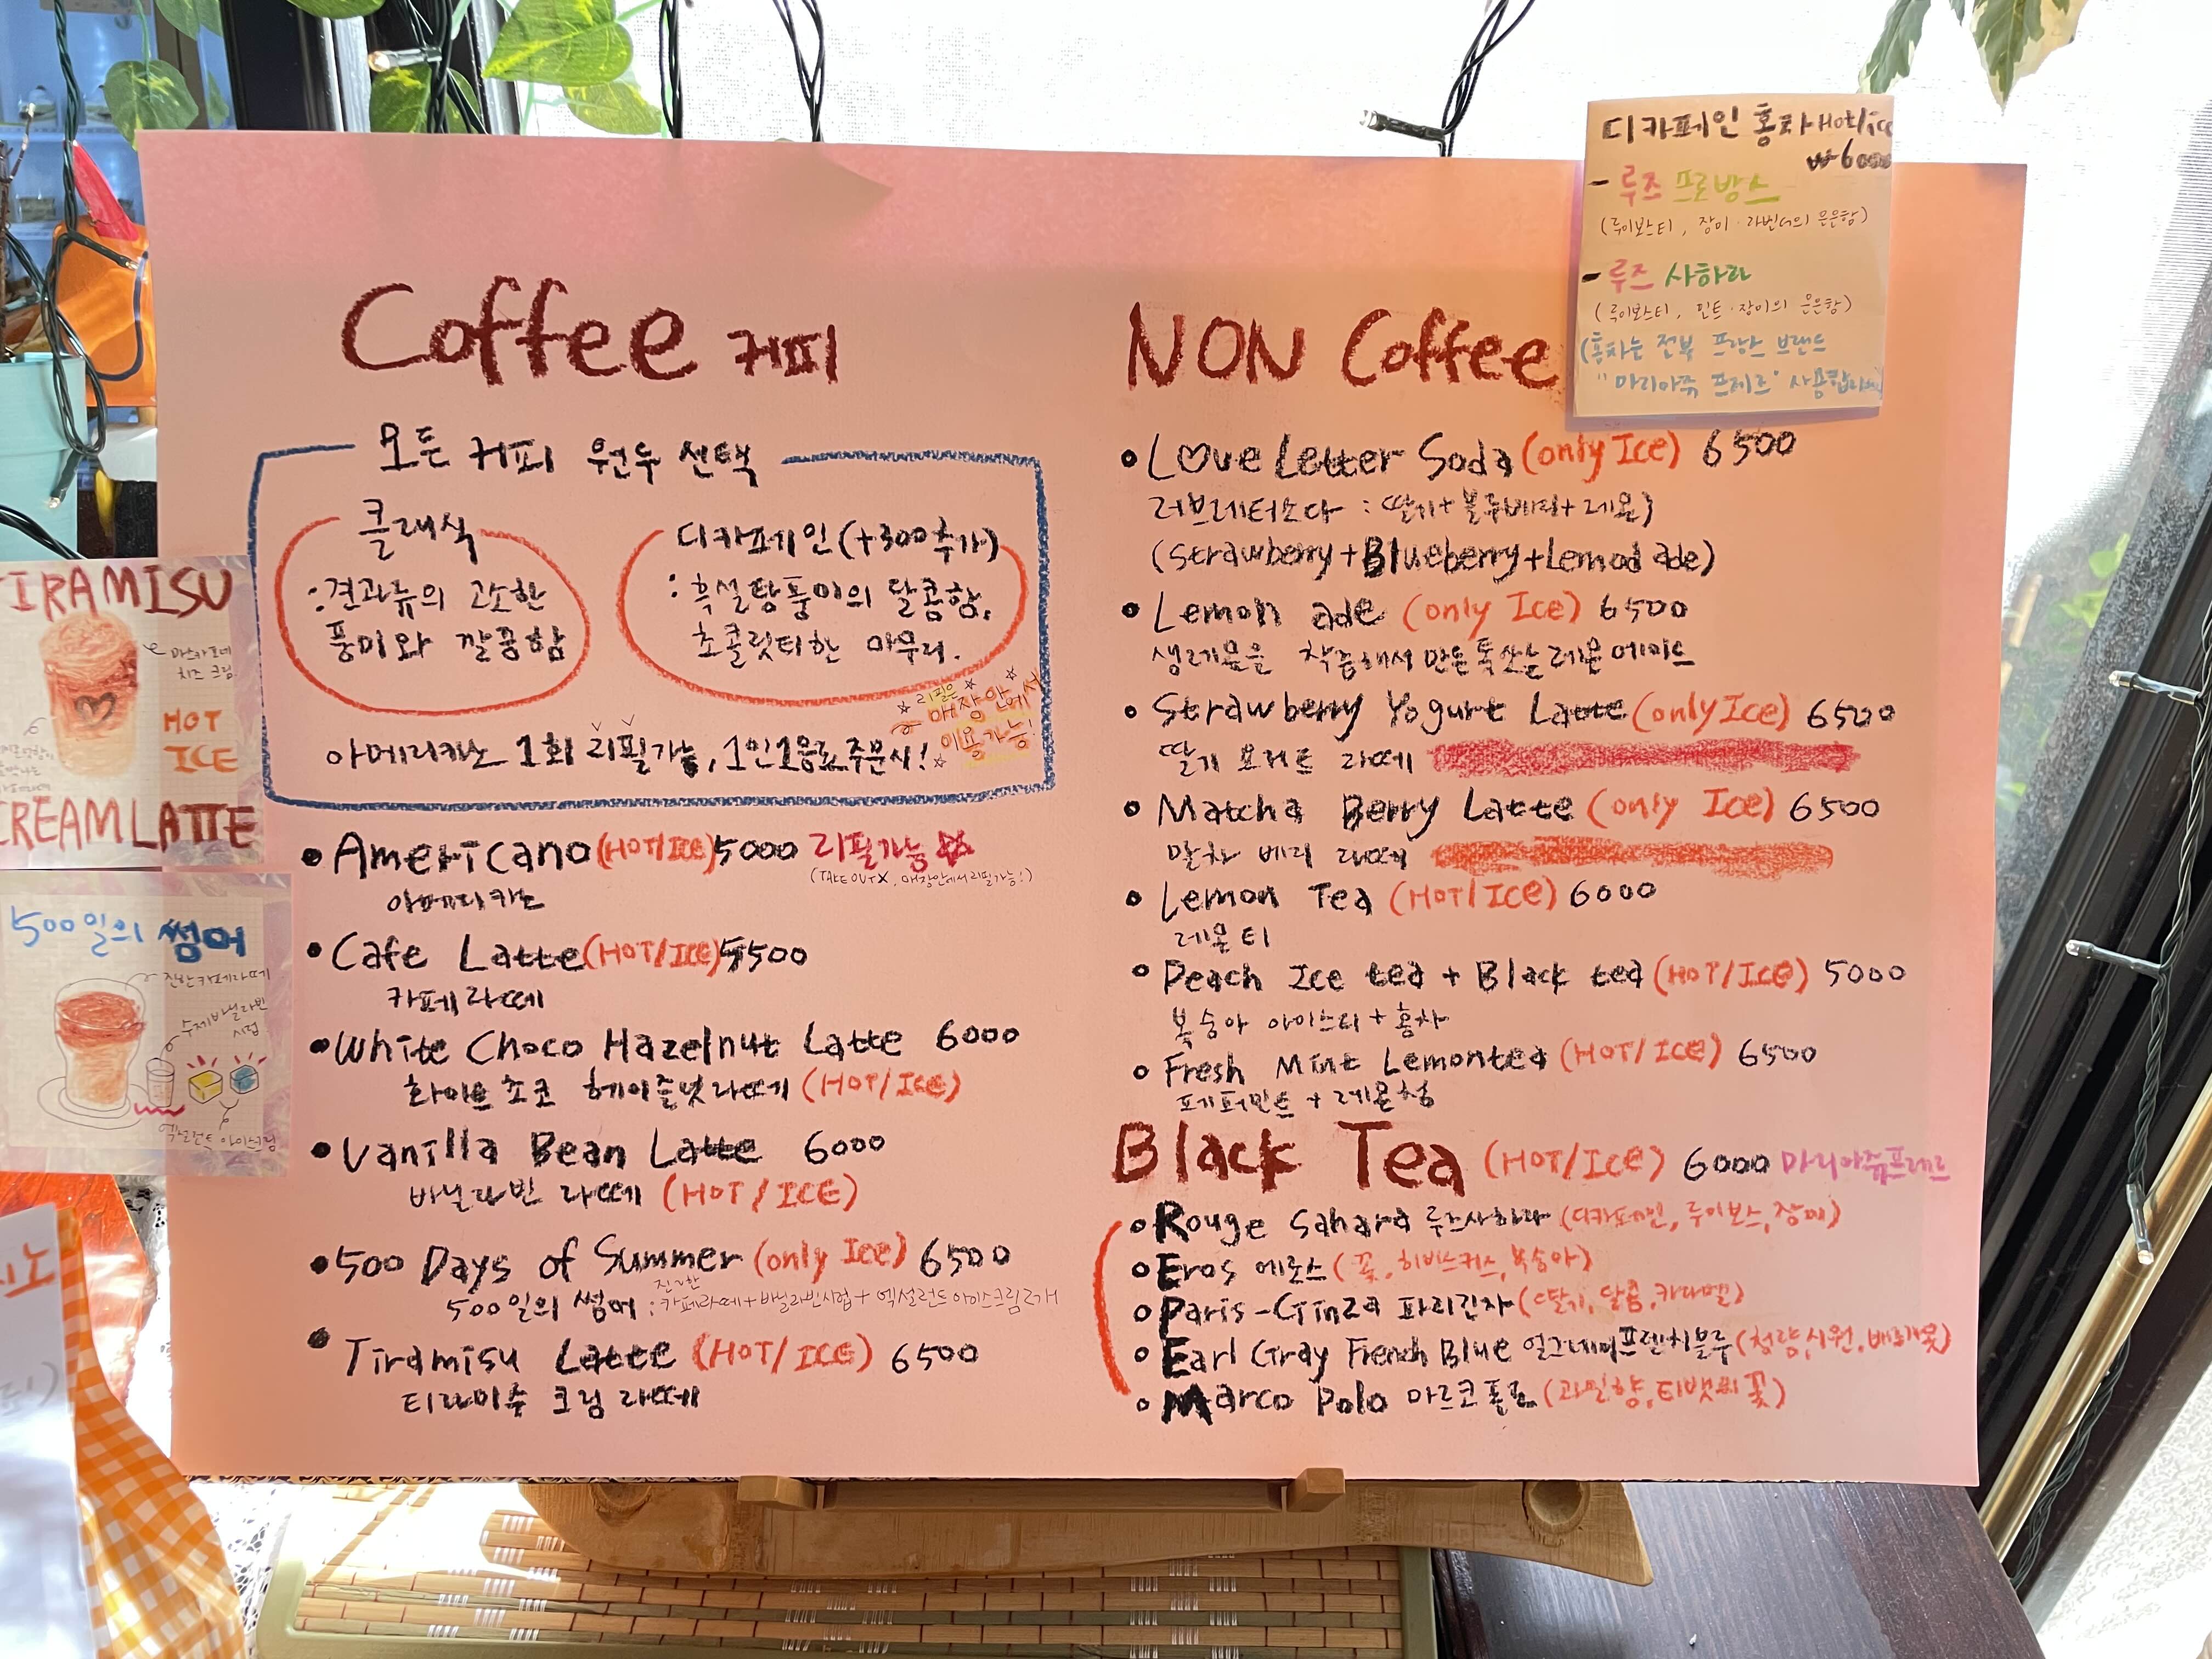 Coffee 커피
모든 커피 원두 선택
클래식
:견과류의 고소한
풍미와 깔끔함
디카페인(+300추가)
:흑설탕풍미의 달콤함,
초콜릿티한 마무리.
아메리카노 1회 리필가능, 1인1음료 주문시!
리필은
매장안에서
이용가능!
• Americano (HOT/ICE) 5000 리필가능☆
(TAKE OUT X, 매장안에서리필가능!)
아메리카노
• Cafe Latte (HOT/ICE) 5500
카페라떼
• White Choco Hazelnut Latte 6000
화이트초코 헤이즐넛라떼 (HOT/ICE)
• Vanilla Bean Latte 6000
바닐라빈 라떼 (HOT/ICE)
• 500 Days of Summer (only Ice) 6500
진~한
500일의 썸머 : 카페라떼+바닐라빈시럽+엑설런트아이스크림2개
• Tiramisu Latte (HOT/ICE) 6500
티라미수 크림 라떼
NON Coffee
• L♡ve Letter Soda (only Ice) 6500
러브레터소다 : 딸기+블루베리+레몬)
(Strawberry+Blueberry+Lemod ade)
• Lemon ade (only Ice) 6500
생레몬을 착즙해서 만든 톡쏘는 레몬에이드
• Strawberry Yogurt Latte (only Ice) 6500
딸기 요거트 라떼
• Matcha Berry Latte (only Ice) 6500
말차 베리 라떼
• Lemon Tea (HOT/ICE) 6000
레몬티
• Peach Ice tea + Black tea (HOT/ICE) 5000
복숭아 아이스티 + 홍차
• Fresh Mint Lemontea (HOT/ICE) 6500
페퍼민트 + 레몬청
Black Tea (HOT/ICE) 6000 마리아쥬프레르
• Rouge Sahara 루즈사하라 (디카페인, 루이보스, 장미)
• Eros 에로스 (꽃, 히비스커스, 복숭아)
• Paris-Ginza 파리긴자 (딸기, 달콤, 카라멜)
• Earl Gray French Blue 얼그레이프렌치블루 (청량,시원,베르가못)
• Marco Polo 마르코폴로 (과일향, 티벳의 꽃)
디카페인 홍차 Hot/ice
₩6000
- 루즈 프로방스
(루이보스티, 장미·라벤더의 은은함)
- 루즈 사하라
(루이보스티, 민트·장미의 은은함)
(홍차는 전부 프랑스 브랜드
"마리아쥬 프레르" 사용합니다)
TIRAMISU
마스카포네
치즈 크림
HOT
ICE
CREAM LATTE
500일의 썸머
진한카페라떼
수제바닐라빈
시럽
엑설런트 아이스크림